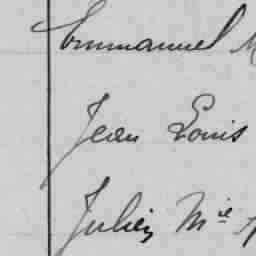 Emmanuel M
Jean Louis
Julien Mie